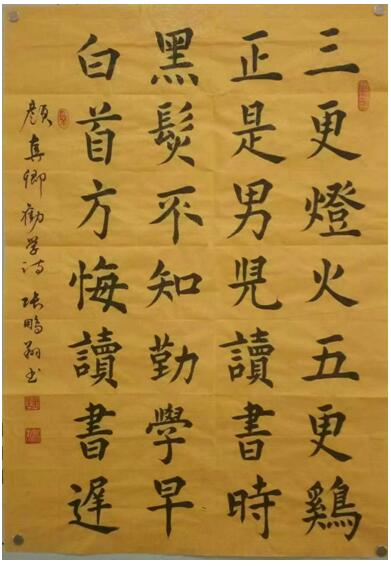 三更燈火五更鷄
正是男兒讀書時
黑髮不知勤學早
白首方悔讀書遲
顔真卿勸学诗 张鵬翔书